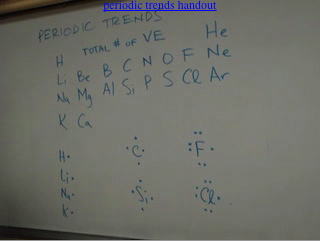 periodic trends handout
PERIODIC TRENDS
TOTAL # OF VE
H He
Li Be B C N O F Ne
Na Mg Al Si P S Cl Ar
K Ca
H C F
Li
Na Si Cl
K